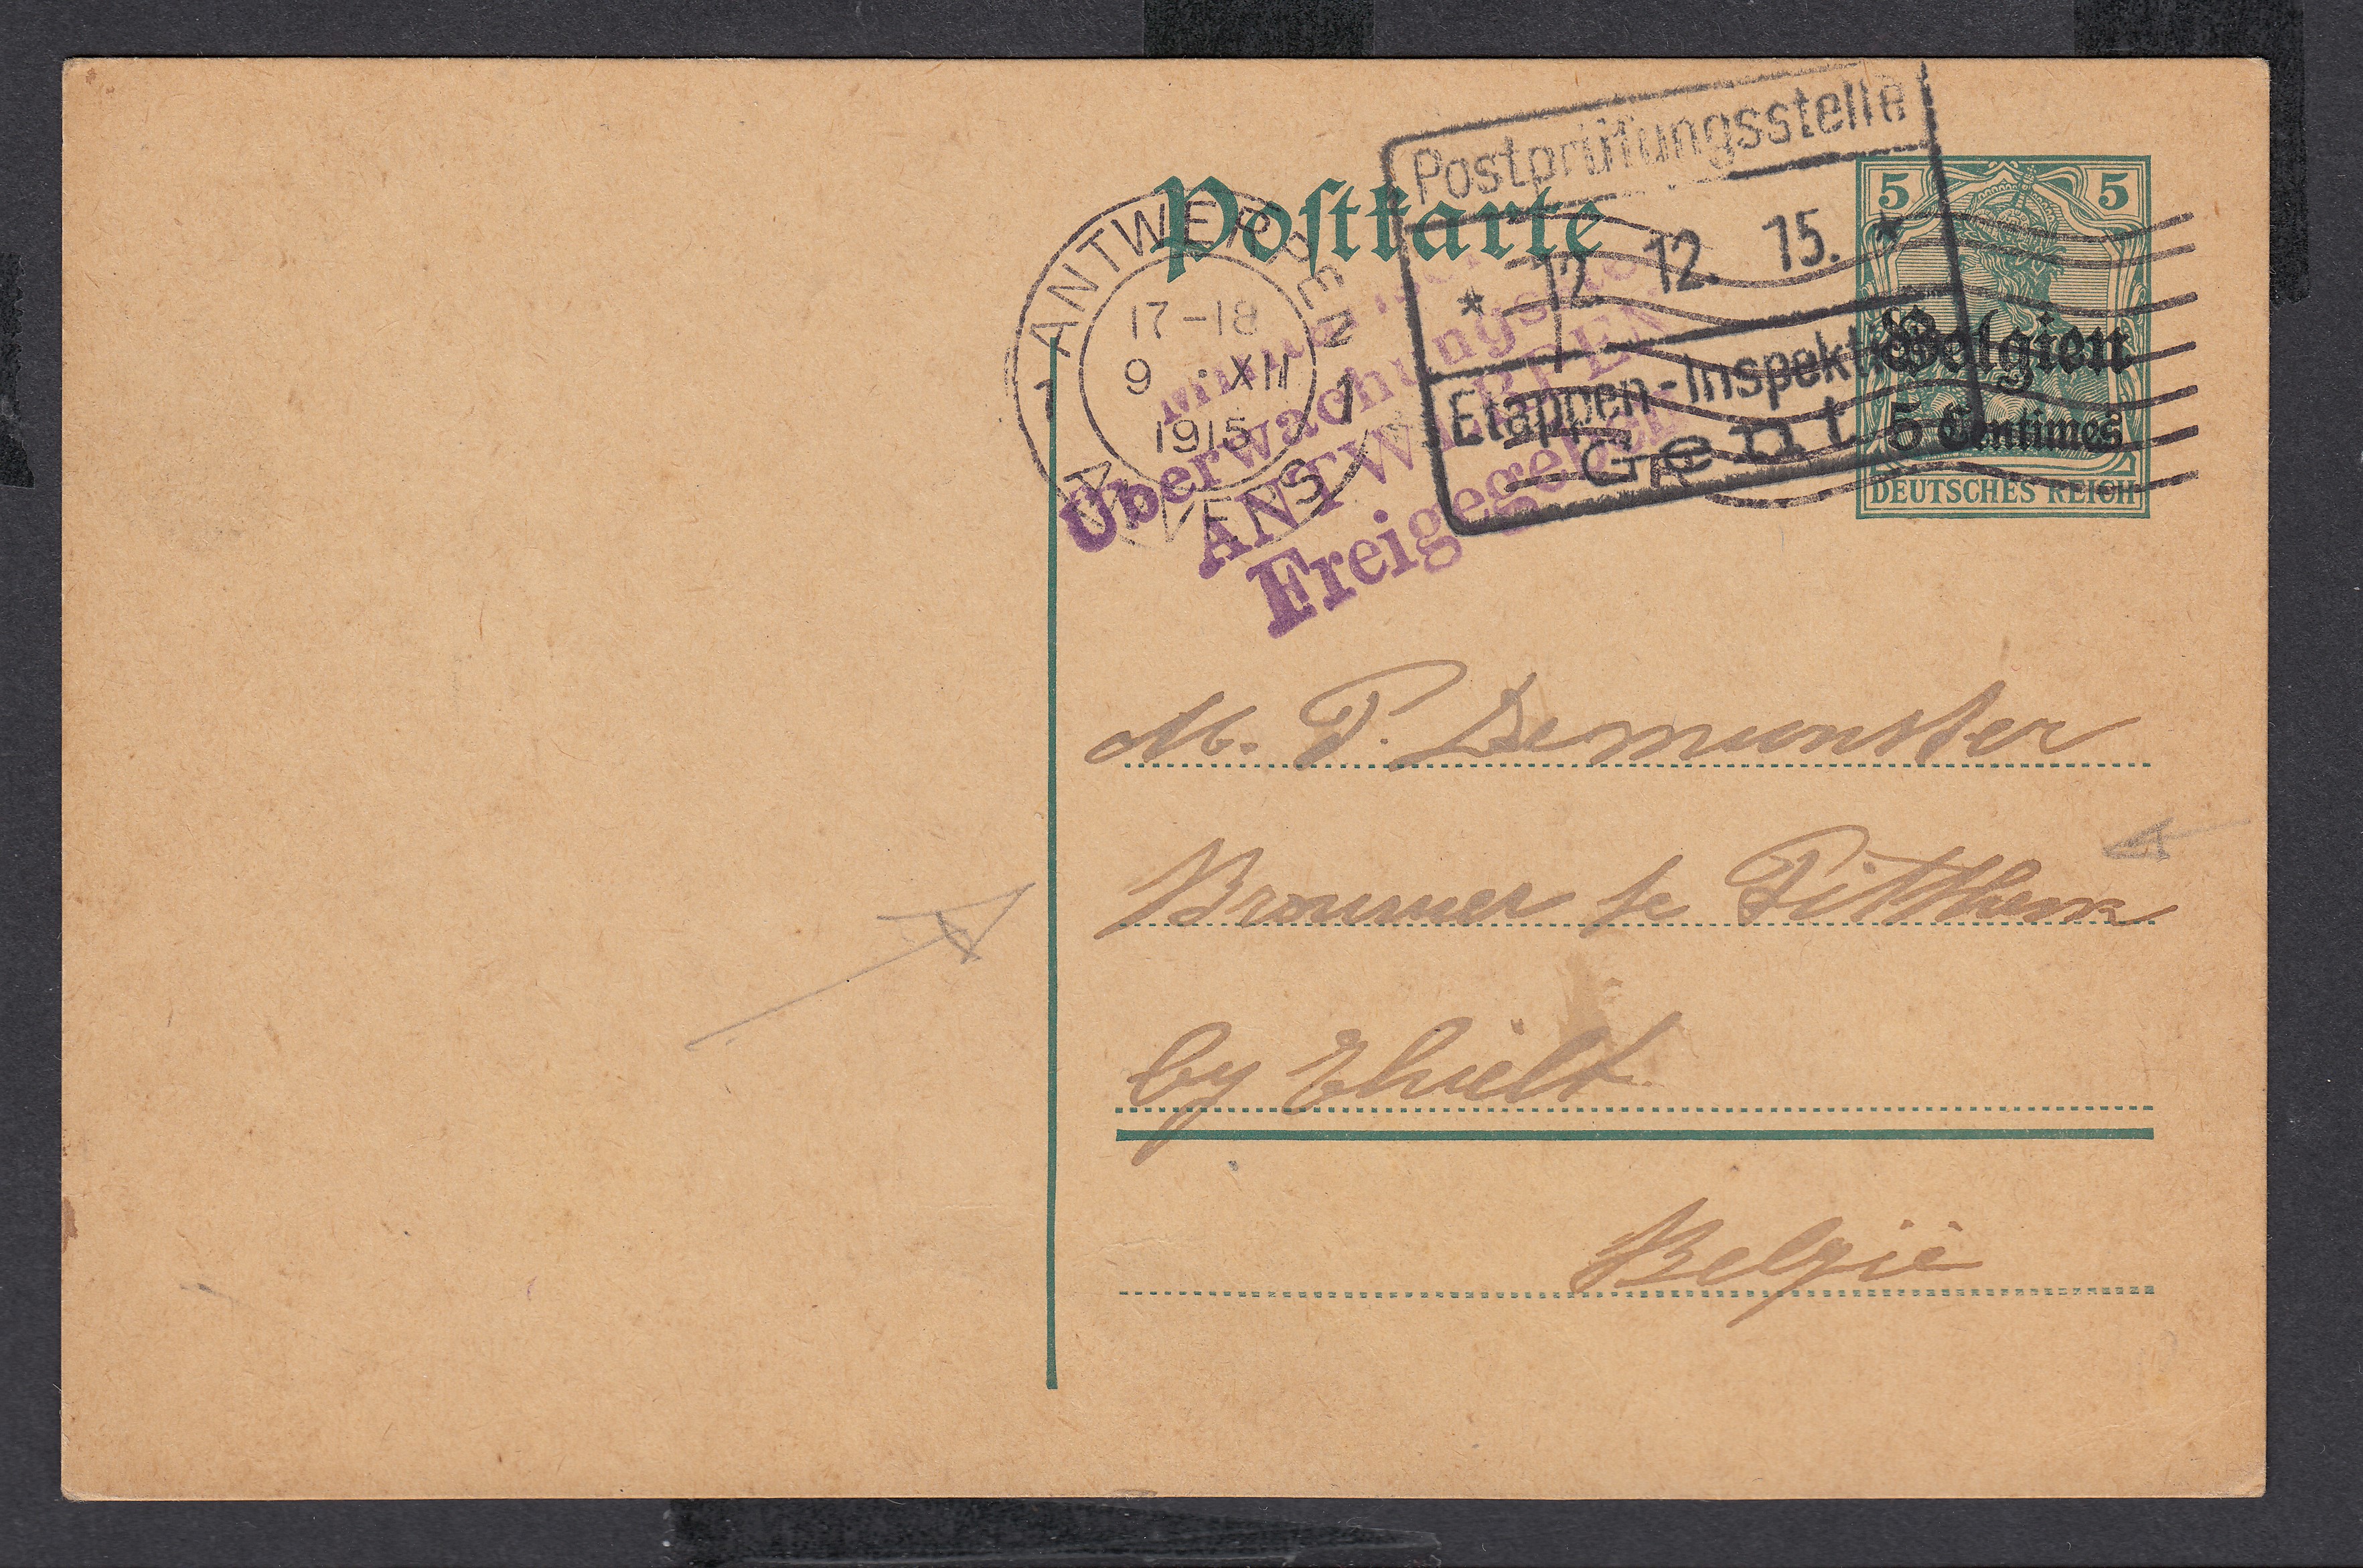 Postkarte
Postprüfungsstelle
* 12. 12. 15. *
Etappen-Inspektion
Gent
ANTWERPEN
17-18
9 ·XII
1915
1 1
ANVERS
Überwachungsstelle
ANTWERPEN
Freigegeben
5 5
Belgien
5 Centimes
DEUTSCHES REICH
M. P. Demunster
Brouwer te Pitthem
by Thielt
België